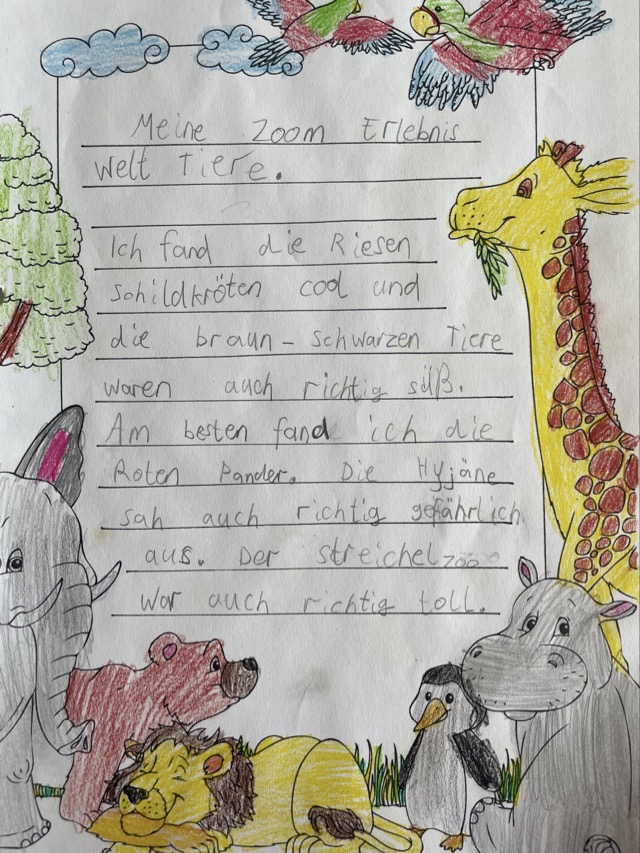 Meine Zoom Erlebnis
Welt Tiere.
Ich fand die Riesen
Schildkröten cool und
die braun-schwarzen Tiere
waren auch richtig süß.
Am besten fand ich die
Roten Pander. Die Hyjäne
sah auch richtig gefährlich
aus. Der Streichelzoo
war auch richtig toll.